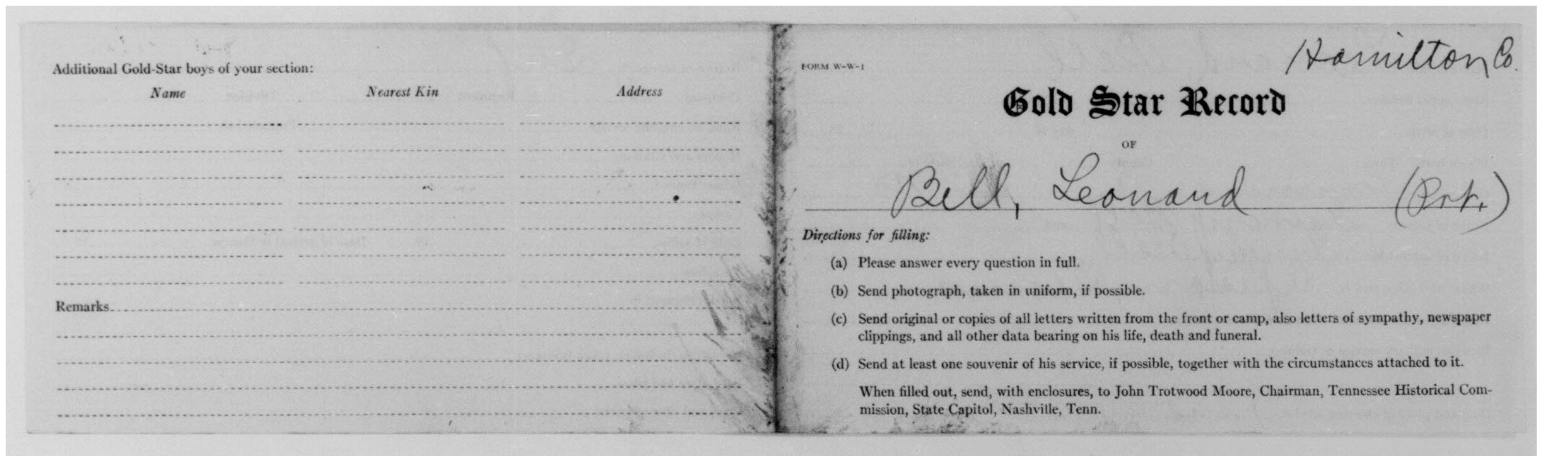 Additional Gold-Star boys of your section:
Name Nearest Kin Address
Remarks
FORM W-W-1
Hamilton Co.
Gold Star Record
OF
Bell, Leonard (Pvt.)
Directions for filling:
(a) Please answer every question in full.
(b) Send photograph, taken in uniform, if possible.
(c) Send original or copies of all letters written from the front or camp, also letters of sympathy, newspaper
clippings, and all other data bearing on his life, death and funeral.
(d) Send at least one souvenir of his service, if possible, together with the circumstances attached to it.
When filled out, send, with enclosures, to John Trotwood Moore, Chairman, Tennessee Historical Com-
mission, State Capitol, Nashville, Tenn.